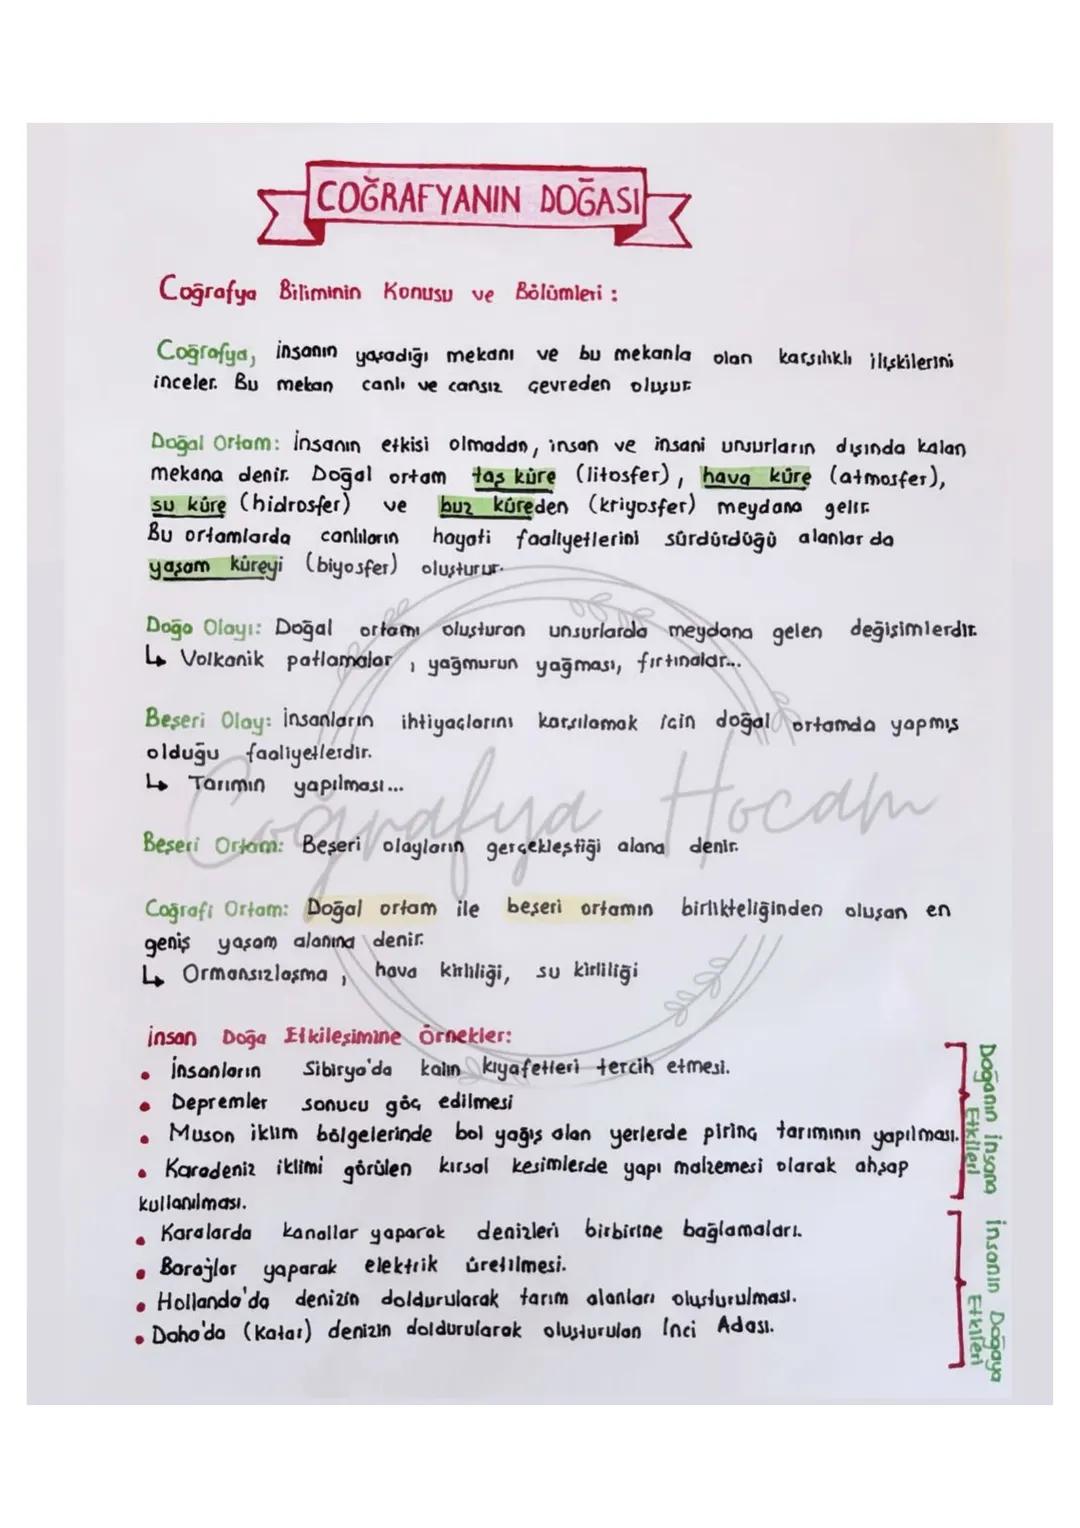 COĞRAFYANIN DOĞASI
Coğrafya Biliminin Konusu ve Bölümleri :
Coğrafya, insanın yaşadığı mekanı ve bu mekanla olan karşılıklı ilişkilerini
inceler. Bu mekan canlı ve cansız çevreden oluşur.
Doğal Ortam: İnsanın etkisi olmadan, insan ve insani unsurların dışında kalan
mekana denir. Doğal ortam taş küre (litosfer), hava küre (atmosfer),
su küre (hidrosfer) ve buz küreden (kriyosfer) meydana gelir.
Bu ortamlarda canlıların hayati faaliyetlerini sürdürdüğü alanlar da
yaşam küreyi (biyosfer) oluşturur.
Doğa Olayı: Doğal ortamı oluşturan unsurlarda meydana gelen değişimlerdir.
↳ Volkanik patlamalar, yağmurun yağması, fırtınalar...
Beşeri Olay: İnsanların ihtiyaçlarını karşılamak için doğal ortamda yapmış
olduğu faaliyetlerdir.
↳ Tarımın yapılması...
Coğrafya Hocam
Beşeri Ortam: Beşeri olayların gerçekleştiği alana denir.
Coğrafi Ortam: Doğal ortam ile beşeri ortamın birlikteliğinden oluşan en
geniş yaşam alanına denir.
↳ Ormansızlaşma, hava kirliliği, su kirliliği
İnsan Doğa Etkileşimine Örnekler:
• İnsanların Sibirya'da kalın kıyafetleri tercih etmesi.
• Depremler sonucu göç edilmesi
• Muson iklim bölgelerinde bol yağış alan yerlerde pirinç tarımının yapılması.
• Karadeniz iklimi görülen kırsal kesimlerde yapı malzemesi olarak ahşap
kullanılması.
Doğanın İnsana
Etkileri
• Karalarda kanallar yaparak denizleri birbirine bağlamaları.
• Barajlar yaparak elektrik üretilmesi.
• Hollanda'da denizin doldurularak tarım alanları oluşturulması.
• Doha'da (Katar) denizin doldurularak oluşturulan İnci Adası.
İnsanın Doğaya
Etkileri